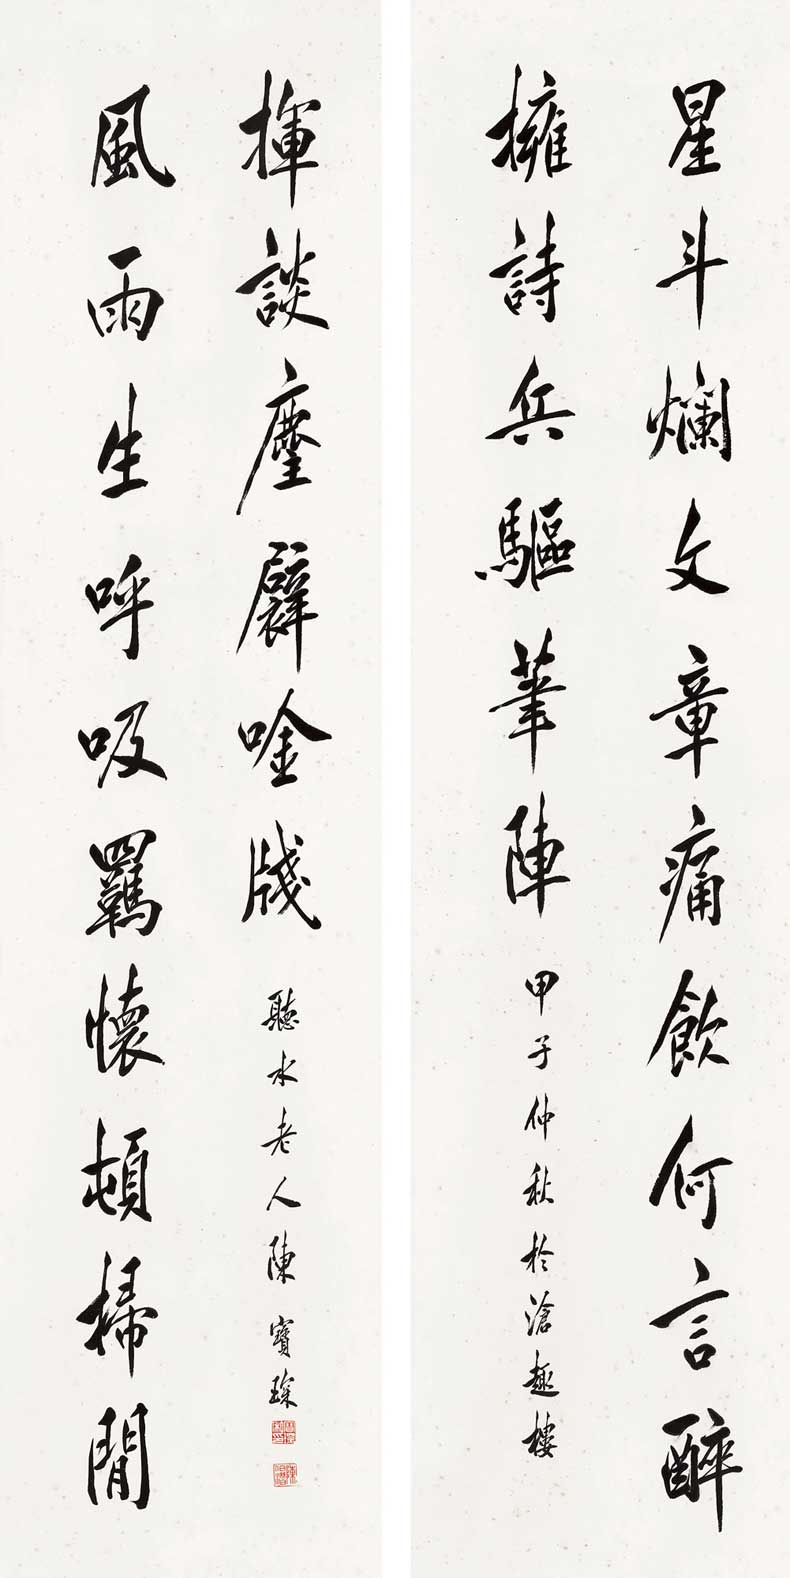 星斗爛文章痛飲何言醉
擁詩兵驅筆陣
甲子仲秋於滄趣樓
風雨生呼吸羈懷頓掃閒
揮談麈襞唫牋
聽水老人陳寶琛